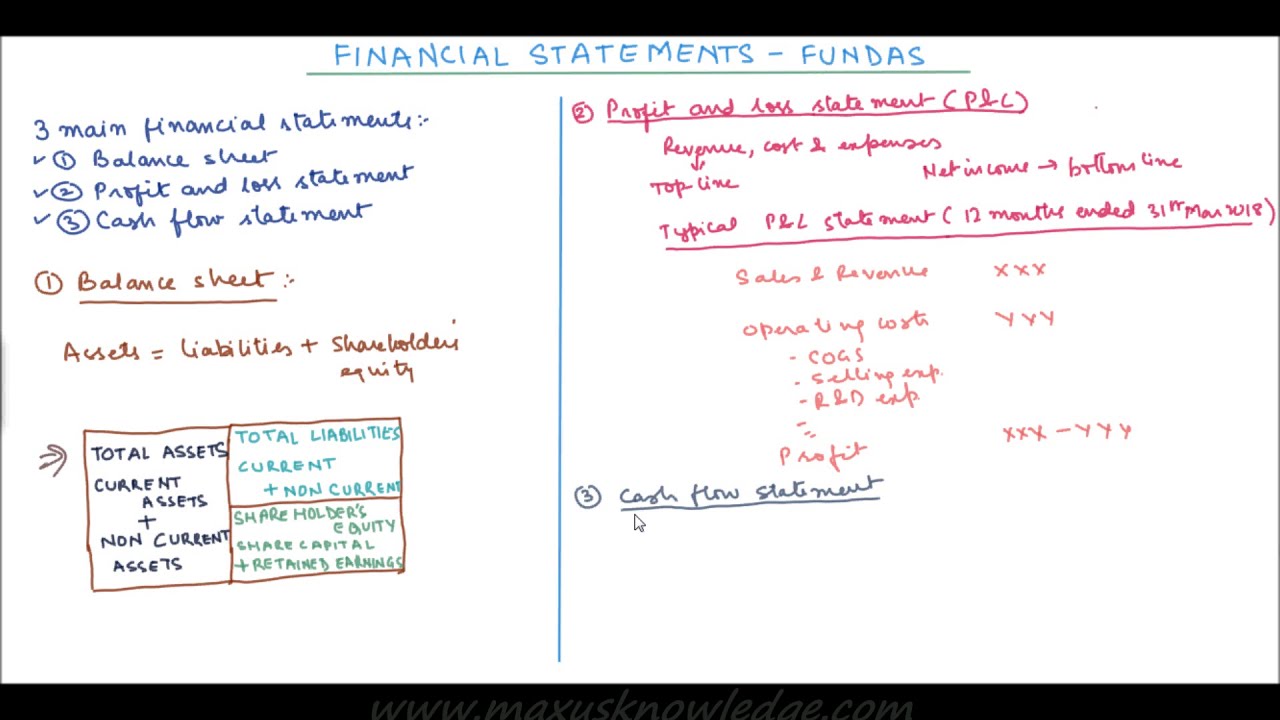 FINANCIAL STATEMENTS - FUNDAS
3 main financial statements:-
✓ ① Balance sheet
✓ ② Profit and loss statement
✓ ③ Cash flow statement
① Balance sheet :-
Assets = liabilities + Shareholder's
equity
⇒
TOTAL ASSETS
CURRENT
ASSETS
+
NON CURRENT
ASSETS
TOTAL LIABILITIES
CURRENT
+ NON CURRENT
SHAREHOLDER'S
EQUITY
SHARE CAPITAL
+ RETAINED EARNINGS
② Profit and loss statement (P&L)
Revenue, cost & expenses
↓
Top line
Net income → bottom line
Typical P&L statement ( 12 months ended 31st Mar 2018)
Sales & Revenue XXX
Operating costs YYY
- COGS
- Selling exp.
- R&D exp
Profit XXX - YYY
③ Cash flow statement
www.maxusknowledge.com